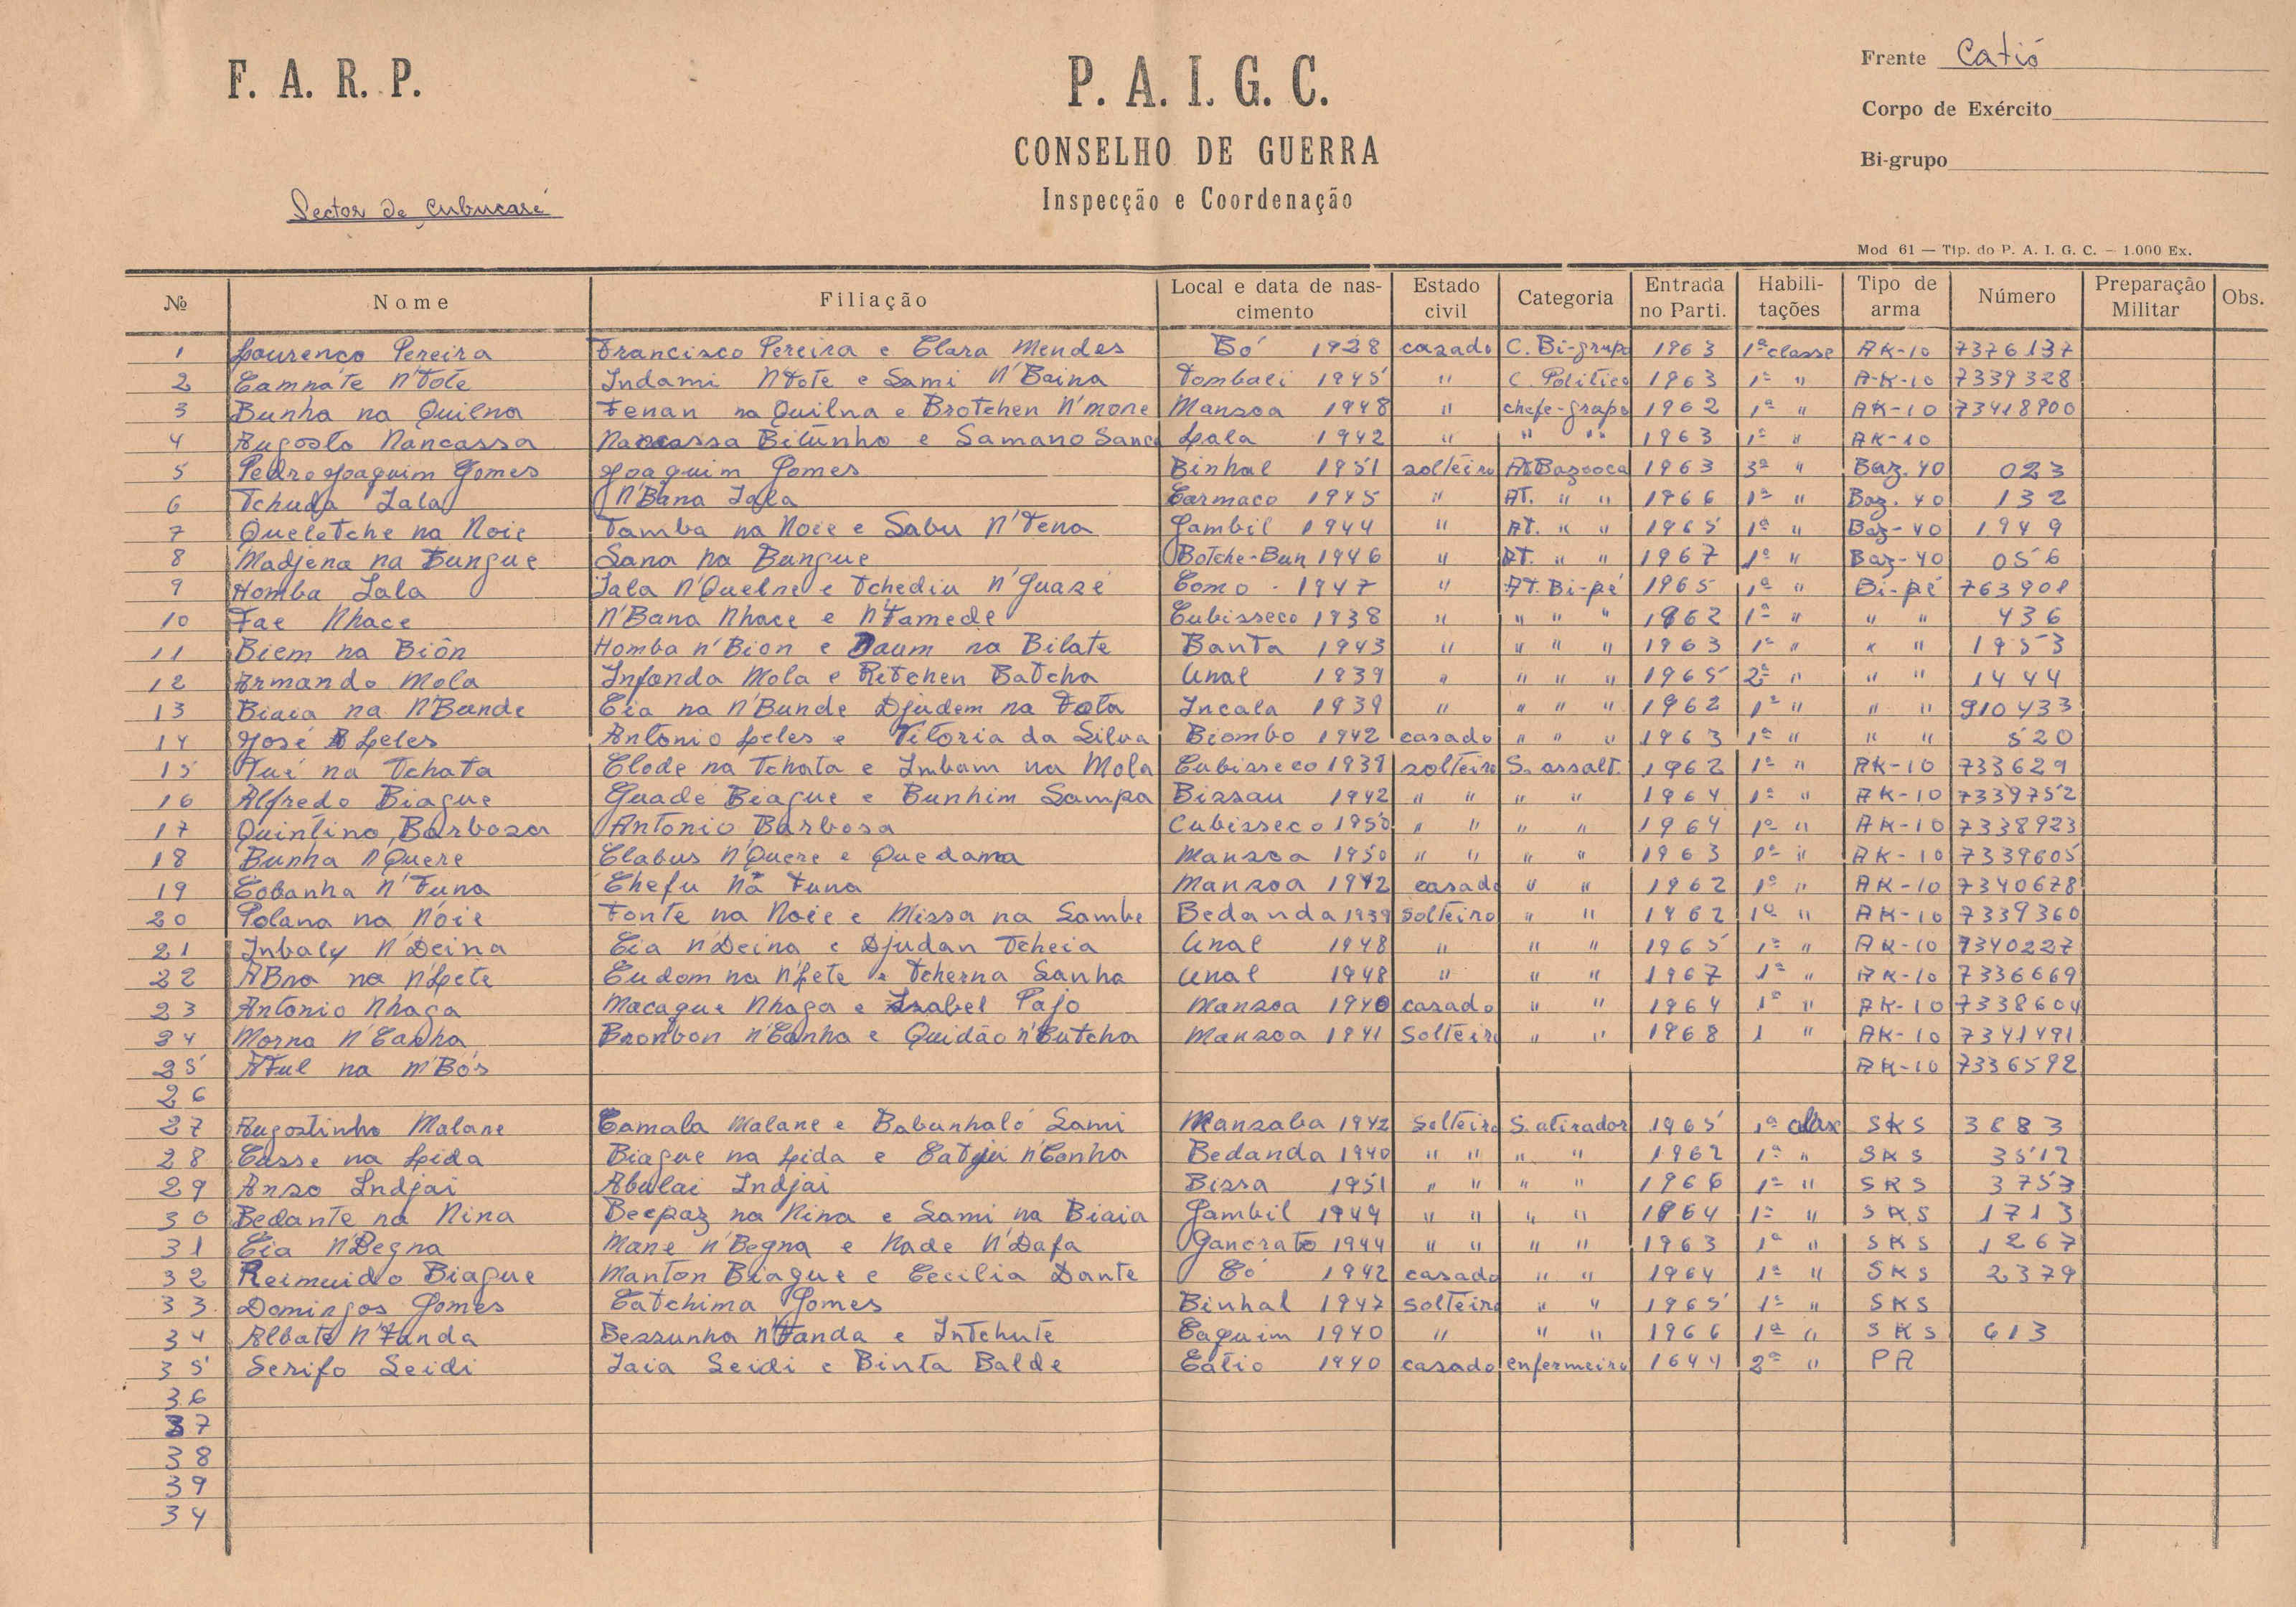 F. A. R. P.
P. A. I. G. C.
CONSELHO DE GUERRA
Inspecção e Coordenação
Frente Catió
Corpo de Exército
Bi-grupo
Sector de Cubucaré
Mod 61 — Tip. do P. A. I. G. C. – 1.000 Ex.
Nº Nome Filiação Local e data de nascimento Estado civil Categoria Entrada no Parti. Habilitações Tipo de arma Número Preparação Militar Obs.
1 Lourenço Pereira Francisco Pereira e Clara Mendes Bó 1928 casado C. Bi-grupo 1963 1ª classe AK-10 7376137
2 Camnáte N'Tote Indami N'Tote e Sami N'Baina Tombali 1945 " C. Politico 1963 1ª " A-K-10 7339328
3 Bunha na Quilna Tenan na Quilna e Brotchen N'mone Mansoa 1948 " chefe-grupo 1962 1ª " AK-10 73418900
4 Augosto Nancassa Nancassa Bitúnho e Samano Sanc Lala 1942 " " " 1963 1ª " AK-10
5 Pedro Joaquim Gomes Joaquim Gomes Binhal 1951 solteiro AT Bazooca 1963 3ª " Baz. 40 023
6 Tchuda Lala N'Bana Lala Carmaco 1945 " AT. " " 1966 1ª " Baz. 40 132
7 Queletche na Noie Tamba na Noie e Sabu N'Tena Gambil 1944 " AT. " " 1965 1ª " Baz-40 1949
8 Madjena na Bungue Sana na Bungue Botche-Bun 1946 " AT. " " 1967 1ª " Baz-40 056
9 Homba Lala Lala N'Quelne e Tchediu N'Guaré Como - 1947 " AT. Bi-pé 1965 1ª " Bi-pé 763901
10 Fae Nhace N'Bana Nhace e N'Tamede Cubisseco 1938 " " " " 1962 1ª " " " 436
11 Biem na Biôn Homba n'Bion e Daum na Bilate Banta 1943 " " " " 1963 1ª " " " 1953
12 Armando Mola Infanda Mola e Ritchen Batcha Unal 1939 " " " " 1965 2ª " " " 1444
13 Biaia na N'Bunde Cia na N'Bunde Djudem na Tota Incala 1939 " " " " 1962 1ª " " " 910433
14 José Leles Antonio Leles e Vitoria da Silva Biombo 1942 casado " " " 1963 1ª " " " 520
15 Tué na Tchata Clode na Tchata e Imbam na Mola Cubisseco 1939 solteiro S. assalt. 1962 1ª " AK-10 733629
16 Alfredo Biague Guade Biague e Bunhim Sampa Bissau 1942 " " " " 1964 1ª " AK-10 7339752
17 Quintino Barbosa Antonio Barbosa Cubisseco 1950 " " " " 1964 1ª " AK-10 7338923
18 Bunha N'Quere Clabus N'Quere e Quedama Mansoa 1950 " " " " 1963 1ª " AK-10 7339605
19 Cobanha N'Tuna Chefu Na Tuna Mansoa 1942 casado " " 1962 1ª " AK-10 7340678
20 Polana na Nóie Fonte na Noie e Missa na Sambe Bedanda 1939 solteiro " " 1962 1ª " AK-10 7339360
21 Inbaly N'Deina Cia N'Deina e Djudan Tcheia Unal 1948 " " " 1965 1ª " AK-10 7340227
22 ABna na N'Lete Cudom na N'Lete e Tcherna Sanha Unal 1948 " " " 1967 1ª " AK-10 7336669
23 Antonio Nhaga Macague Nhaga e Izabel Pajo Mansoa 1940 casado " " 1964 1ª " AK-10 7338604
24 Morna N'Canha Bronbon N'Canha e Quidão N'Butcha Mansoa 1941 Solteiro " " 1968 1 " AK-10 7341491
25 na m'Bós AK-10 7336592
26
27 Augostinho Malane Camala Malane e Babunhaló Sami Mansaba 1942 Solteiro S. atirador 1965 1ª SKS 3883
28 Casse na Lida Biague na Lida e N'Conha Bedanda 1940 " " " " 1962 1ª " SKS 3512
29 Anso Indjai Abulai Indjai Bissa 1951 " " " " 1966 1ª " SKS 3753
30 Bedante na Nina Beepaz na Nina e Sami na Biaia Gambil 1949 " " " " 1964 1ª " SKS 1713
31 Cia N'Begna Mane N'Begna e Nade N'Dafa Gancrato 1944 " " " " 1963 1ª " SKS 1267
32 Reimuido Biague Manton Biague e Cecilia Dante Có 1942 casado " " 1964 1ª " SKS 2379
33 Domingos Gomes Catchima Gomes Binhal 1947 Solteiro " " 1965 1ª " SKS
34 Albate N'Tanda Bessunha N'Tanda e Intchute Caquim 1940 " " " 1966 1ª " SKS 613
35 Serifo Seidi Iaia Seidi e Binta Balde Catio 1940 casado enfermeiro 1644 2ª " PA
36
37
38
39
34